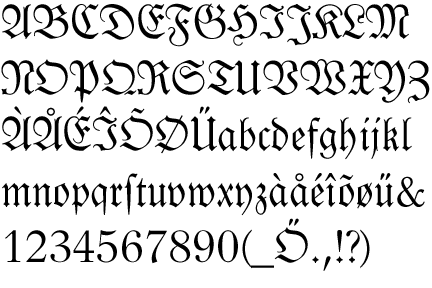 ABCDEFGHIJKLM
NOPQRSTUVWXYZ
ÀÅÉÎÕØÜabcdefghijkl
mnopqrſtuvwxyzàåéîõøü&
1234567890(_Ö.,!?)